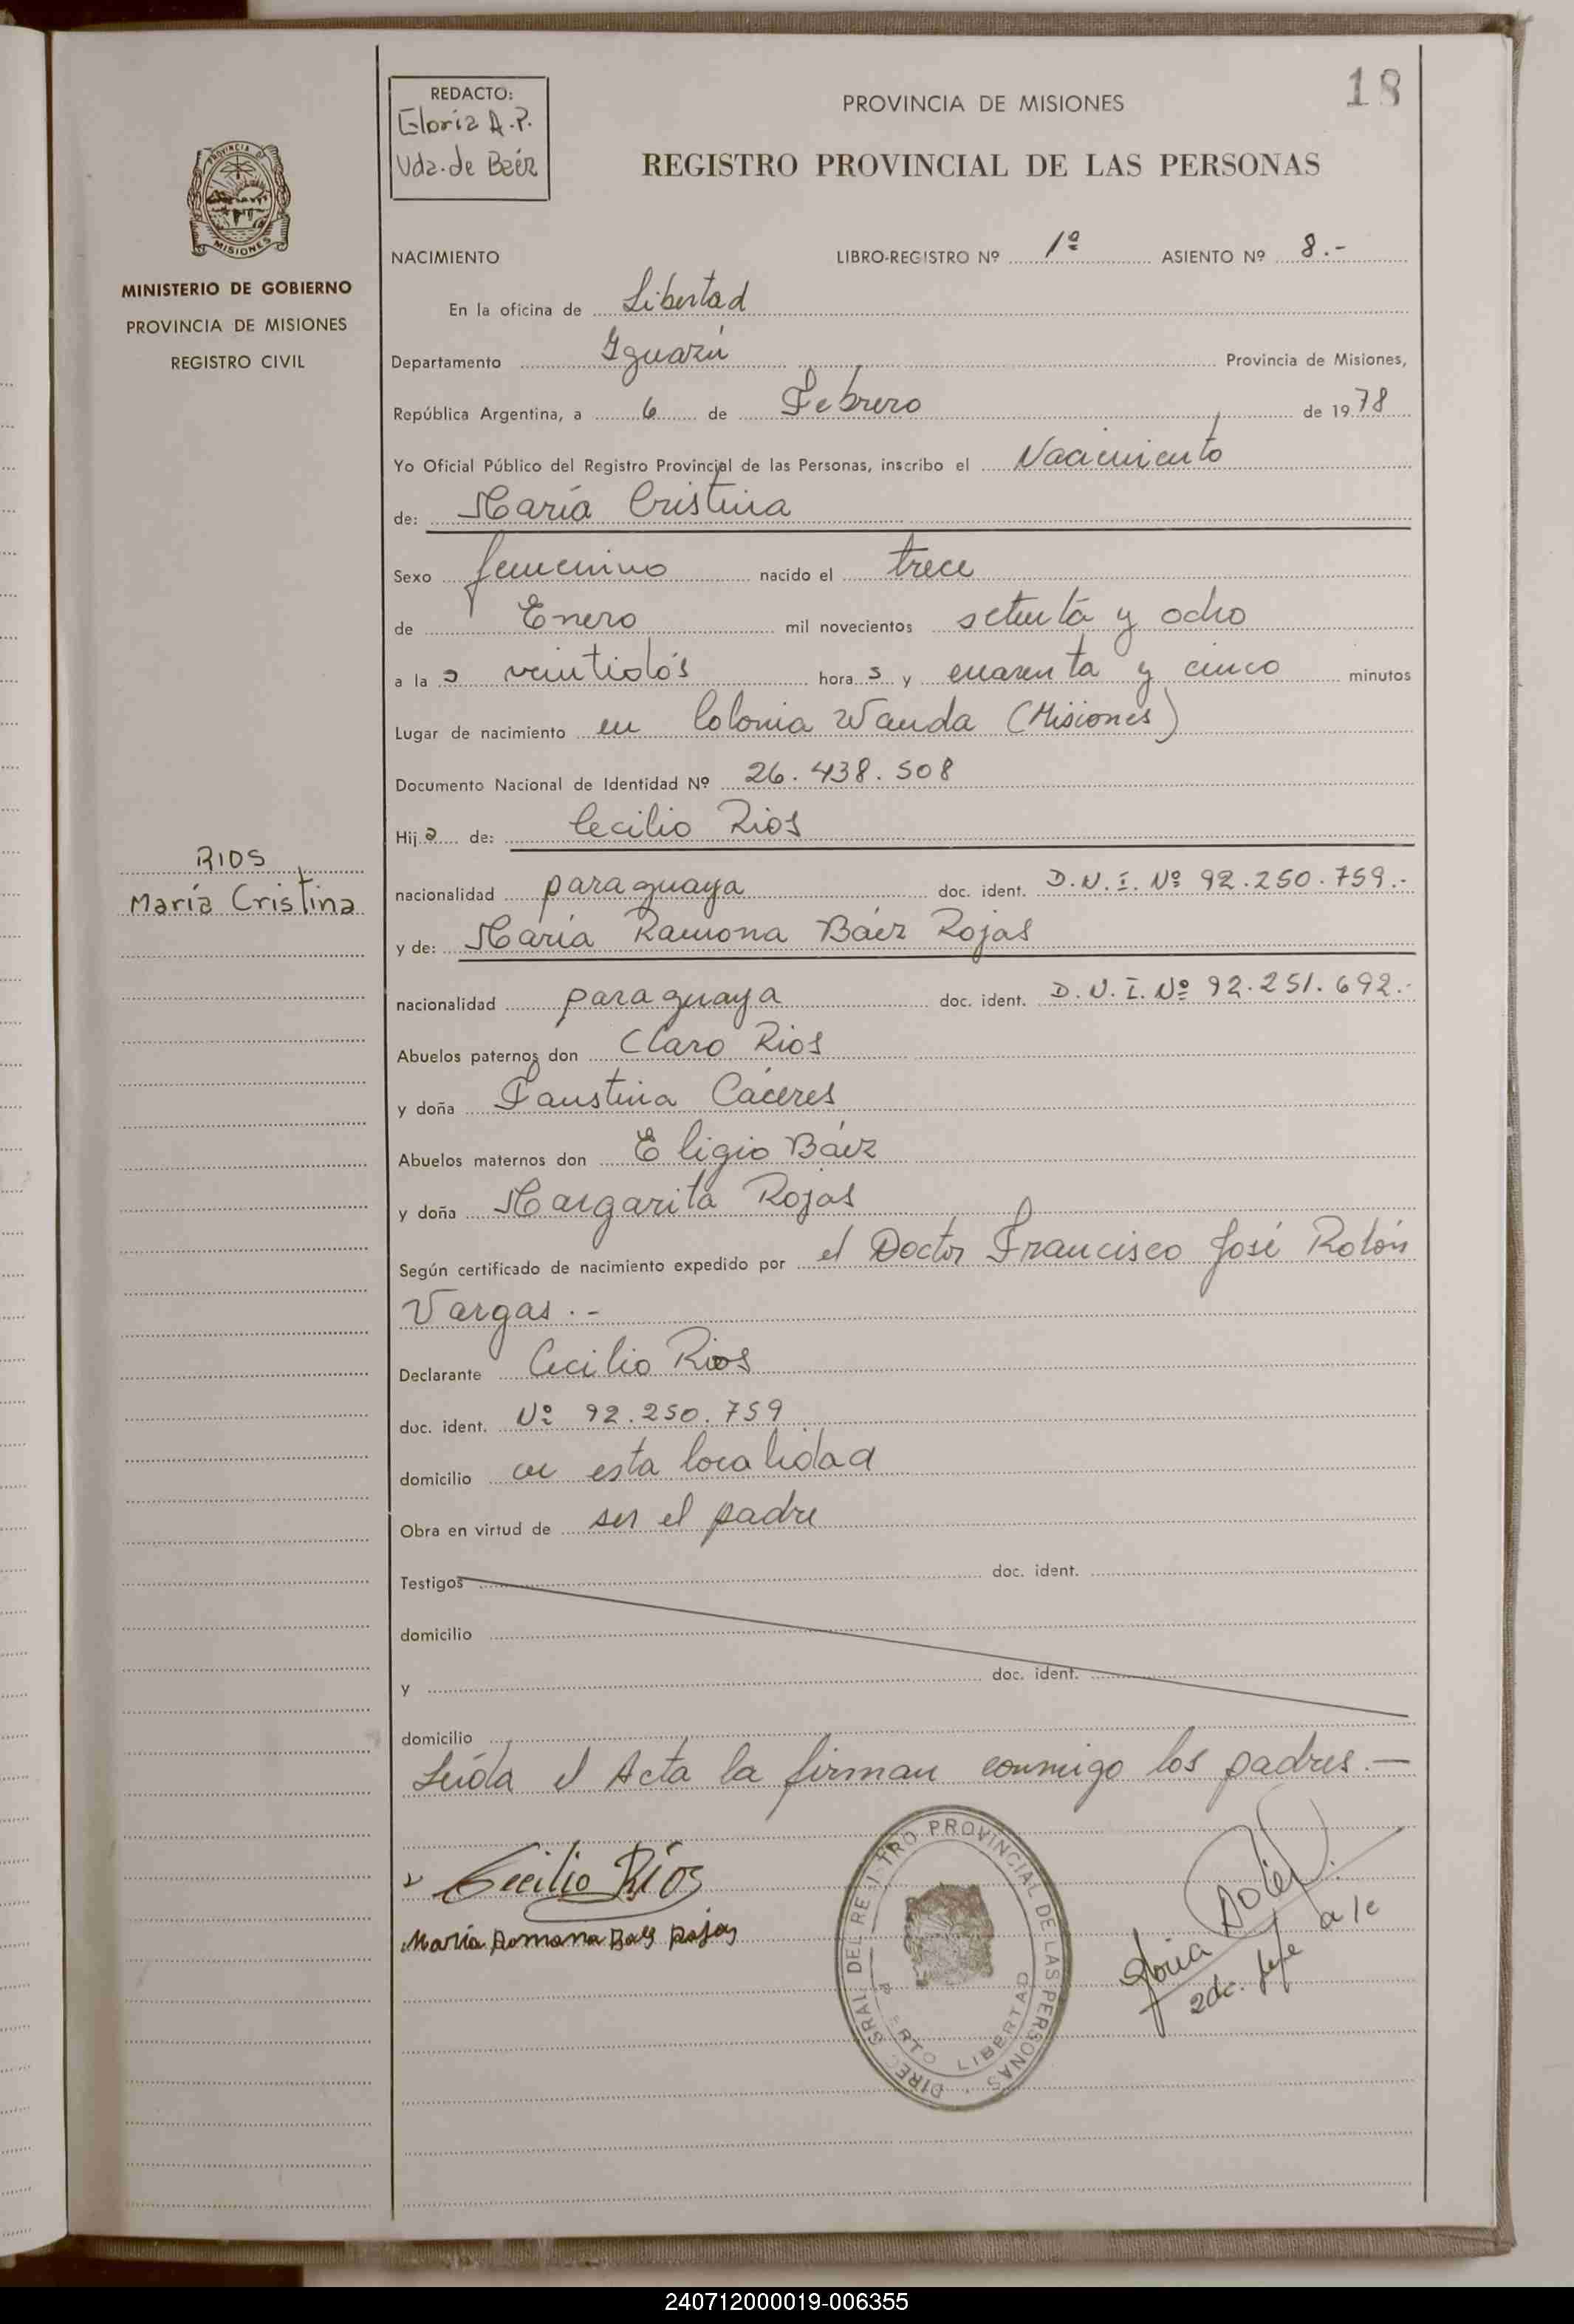 18
REDACTO:
Gloria A.P.
Vda. de Baéz
PROVINCIA DE MISIONES
REGISTRO PROVINCIAL DE LAS PERSONAS
PROVINCIA DE
MISIONES
MINISTERIO DE GOBIERNO
PROVINCIA DE MISIONES
REGISTRO CIVIL
NACIMIENTO LIBRO-REGISTRO Nº 1º ASIENTO Nº 8.-
En la oficina de Libertad
Departamento Iguazú Provincia de Misiones,
República Argentina, a 6 de Febrero de 1978
Yo Oficial Público del Registro Provincial de las Personas, inscribo el Nacimiento
de: María Cristina
Sexo femenino nacido el trece
de Enero mil novecientos setenta y ocho
a la s veintidós hora s y cuarenta y cinco minutos
Lugar de nacimiento en Colonia Wanda (Misiones)
Documento Nacional de Identidad Nº 26.438.508
Hija de: Cecilio Rios
RIOS
María Cristina
nacionalidad paraguaya doc. ident. D.N.I. Nº 92.250.759.-
y de: María Ramona Báez Rojas
nacionalidad paraguaya doc. ident. D.N.I. Nº 92.251.692.-
Abuelos paternos don Claro Rios
y doña Faustina Cáceres
Abuelos maternos don Eligio Báez
y doña Margarita Rojas
Según certificado de nacimiento expedido por el Doctor Francisco José Rolón
Vargas.-
Declarante Cecilio Rios
doc. ident. Nº 92.250.759
domicilio en esta localidad
Obra en virtud de ser el padre
Testigos doc. ident.
domicilio
y doc. ident.
domicilio
Leída el Acta la firman conmigo los padres.—
Cecilio Ríos
María Romona Baes Rojas
DIREC. GRAL. DEL REGISTRO PROVINCIAL DE LAS PERSONAS
PUERTO LIBERTAD
Gloria
2do. Jefe a/c
240712000019-006355